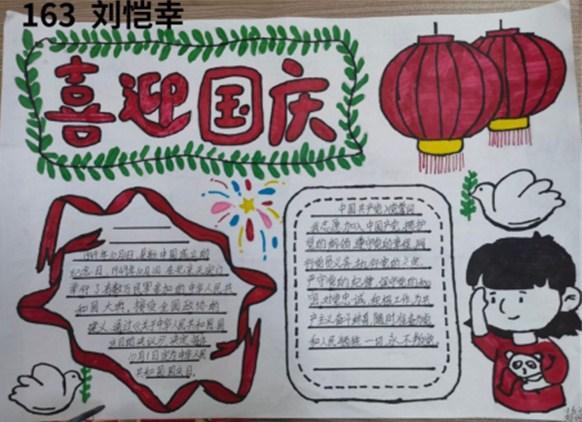 163 刘恺幸
喜迎国庆
1949年10月1日，是新中国成立的
纪念日。1949年10月1日，在北京天安门
举行了有数万民军参加的中华人民共
和国大典，接受全国政协的
建议，通过《关于中华人民共和国国
10月1日定为中华人民
共和国国庆日
中国共产党入党誓词
我志愿加入中国共产党，拥护
党的纲领，遵守党的章程，履
行党员义务，执行党的决定，
严守党的纪律，保守党的秘
密，对党忠诚，积极工作，为共
产主义奋斗终身，随时准备为党
和人民牺牲一切，永不叛党。